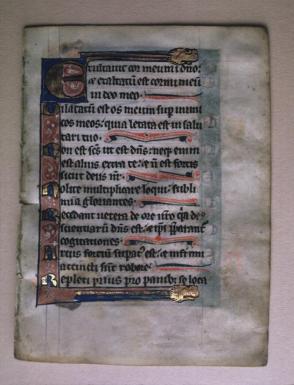 Exultauit cor meum i dno:
et exaltatu est cornu meu
in deo meo.
Dilatatu est os meum sup inimi
cos meos: quia letata est in salu
tari tuo.
Non est scs ut est dns: neqz enim
est alius extra te: et n est fortis
sicut deus nr.
Nolite multiplicare loqui: subli
mia gloriantes.
Recedant uetera de ore uro: qa deus
scientiarum dns est: et ipi pparant
cogitationes.
Arcus fortium supat est: et infirmi
accincti sunt robore.
Repleti prius pro panibz se loca